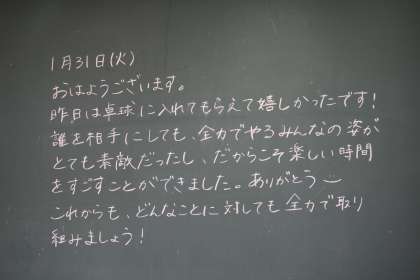 1月31日(火)
おはようございます。
昨日は卓球に入れてもらえて嬉しかったです!
誰を相手にしても、全力でやるみんなの姿が
とても素敵だったし、だからこそ楽しい時間
をすごすことができました。ありがとう
これからも、どんなことに対しても全力で取り
組みましょう!